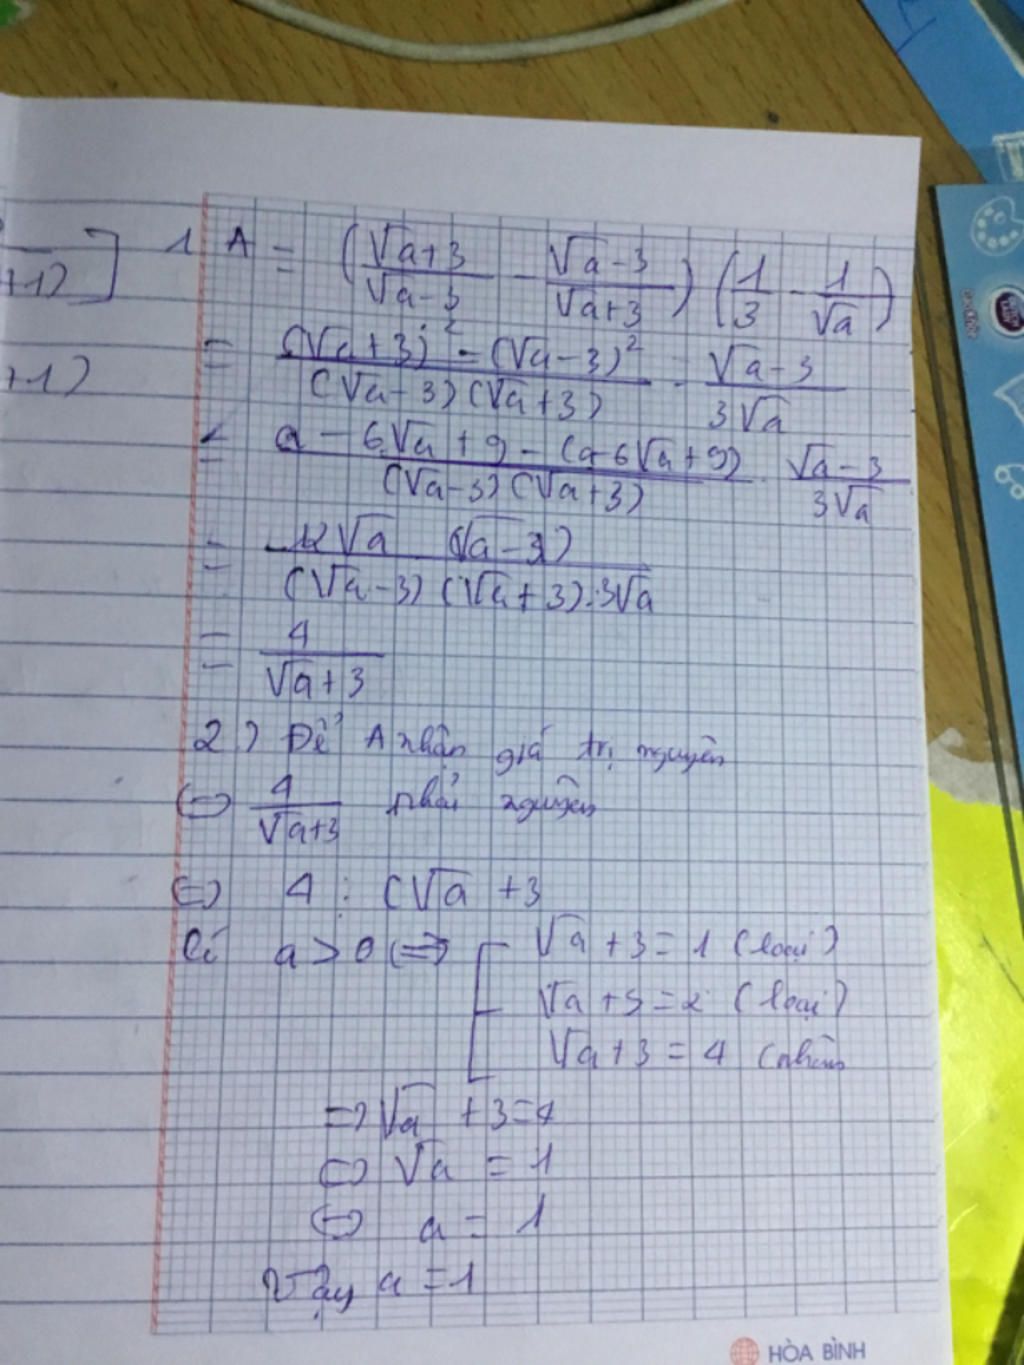 +1)]
1 A = (√a+3/√a-3 - √a-3/√a+3) (1/3 - 1/√a)
= (√a+3)² - (√a-3)² / (√a-3)(√a+3) - √a-3 / 3√a
+1)
= a - 6√a + 9 - (a-6√a+9) / (√a-3)(√a+3) . √a-3 / 3√a
= 12√a (√a-3) / (√a-3)(√a+3).3√a
= 4 / √a+3
2) Để A nhận giá trị nguyên
<=> 4/√a+3 phải nguyên
<=> 4 ⋮ (√a +3
a > 0 <=> [ √a + 3 = 1 (loại)
√a + 3 = 2 (loại)
√a + 3 = 4 (nhận
=> √a + 3 = 4
<=> √a = 1
<=> a = 1
Vậy a = 1
HÒA BÌNH